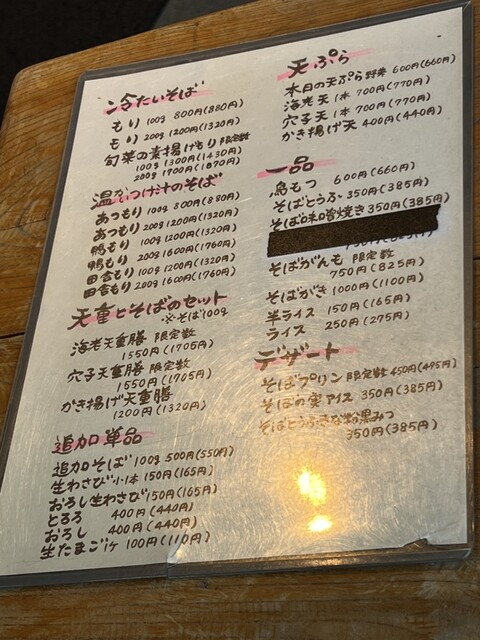 冷たいそば
もり 100g 800円(880円)
もり 200g 1200円(1320円)
旬菜の素揚げもり 限定数
100g 1300円(1430円)
200g 1700円(1870円)
温かいつけ汁のそば
あつもり 100g 800円(880円)
あつもり 200g 1200円(1320円)
鴨もり 100g 1200円(1320円)
鴨もり 200g 1600円(1760円)
田舎もり 100g 1200円(1320円)
田舎もり 200g 1600円(1760円)
天重とそばのセット
※そば100g
海老天重膳 限定数
1550円(1705円)
穴子天重膳 限定数
1550円(1705円)
かき揚げ天重膳
1200円(1320円)
追加単品
追加そば 100g 500円(550円)
生わさび小1本 150円(165円)
おろし生わさび 150円(165円)
とろろ 400円(440円)
おろし 400円(440円)
生たまご1ヶ 100円(110円)
天ぷら
本日の天ぷら 野菜 600円(660円)
海老天 1本 700円(770円)
穴子天 1本 700円(770円)
かき揚げ天 400円(440円)
一品
鳥もつ 600円(660円)
そばとうふ 350円(385円)
そば味噌焼き 350円(385円)
そばがんも 限定数
750円(825円)
そばがき 1000円(1100円)
半ライス 150円(165円)
ライス 250円(275円)
デザート
そばプリン 限定数 450円(495円)
そばの実アイス 350円(385円)
そばとうふきな粉黒みつ
350円(385円)